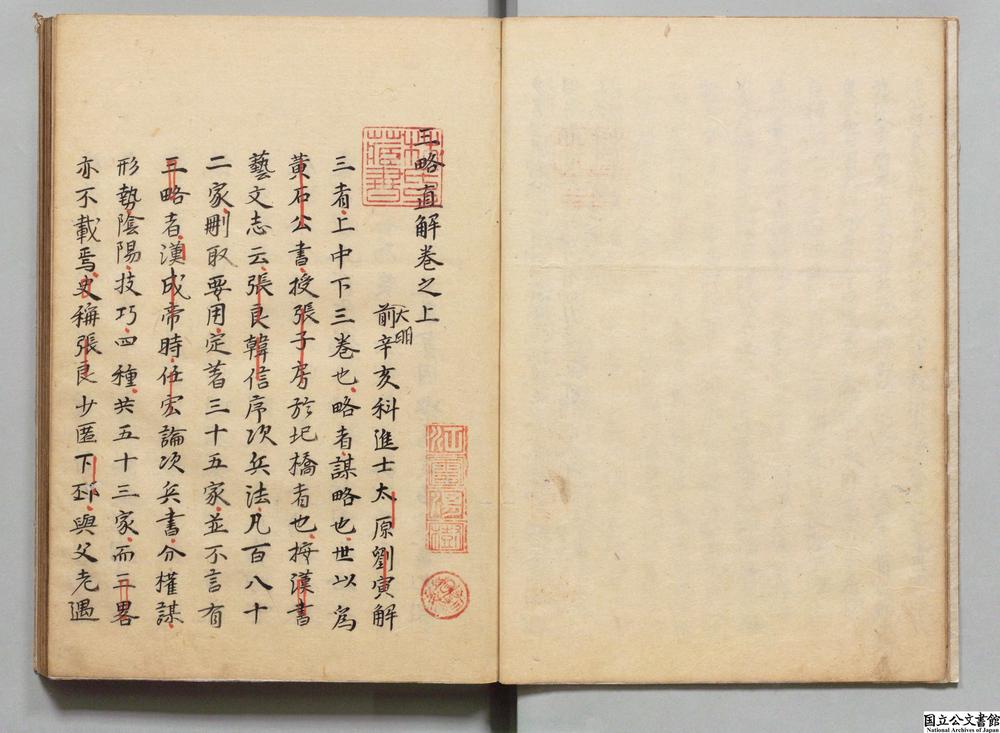 三略直解卷之上
大明
前辛亥科進士太原劉寅解
三者上中下三卷也略者謀略也世以為
黄石公書授張子房於圯橋者也按漢書
藝文志云張良韓信序次兵法凢百八十
二家刪取要用定著三十五家並不言有
三略者漢成帝時任宏論次兵書分權謀
形勢陰陽技巧四種共五十三家而三畧
亦不載焉史稱張良少匿下邳與父老遇
林氏
藏書
江雲渭樹
国立公文書館
National Archives of Japan